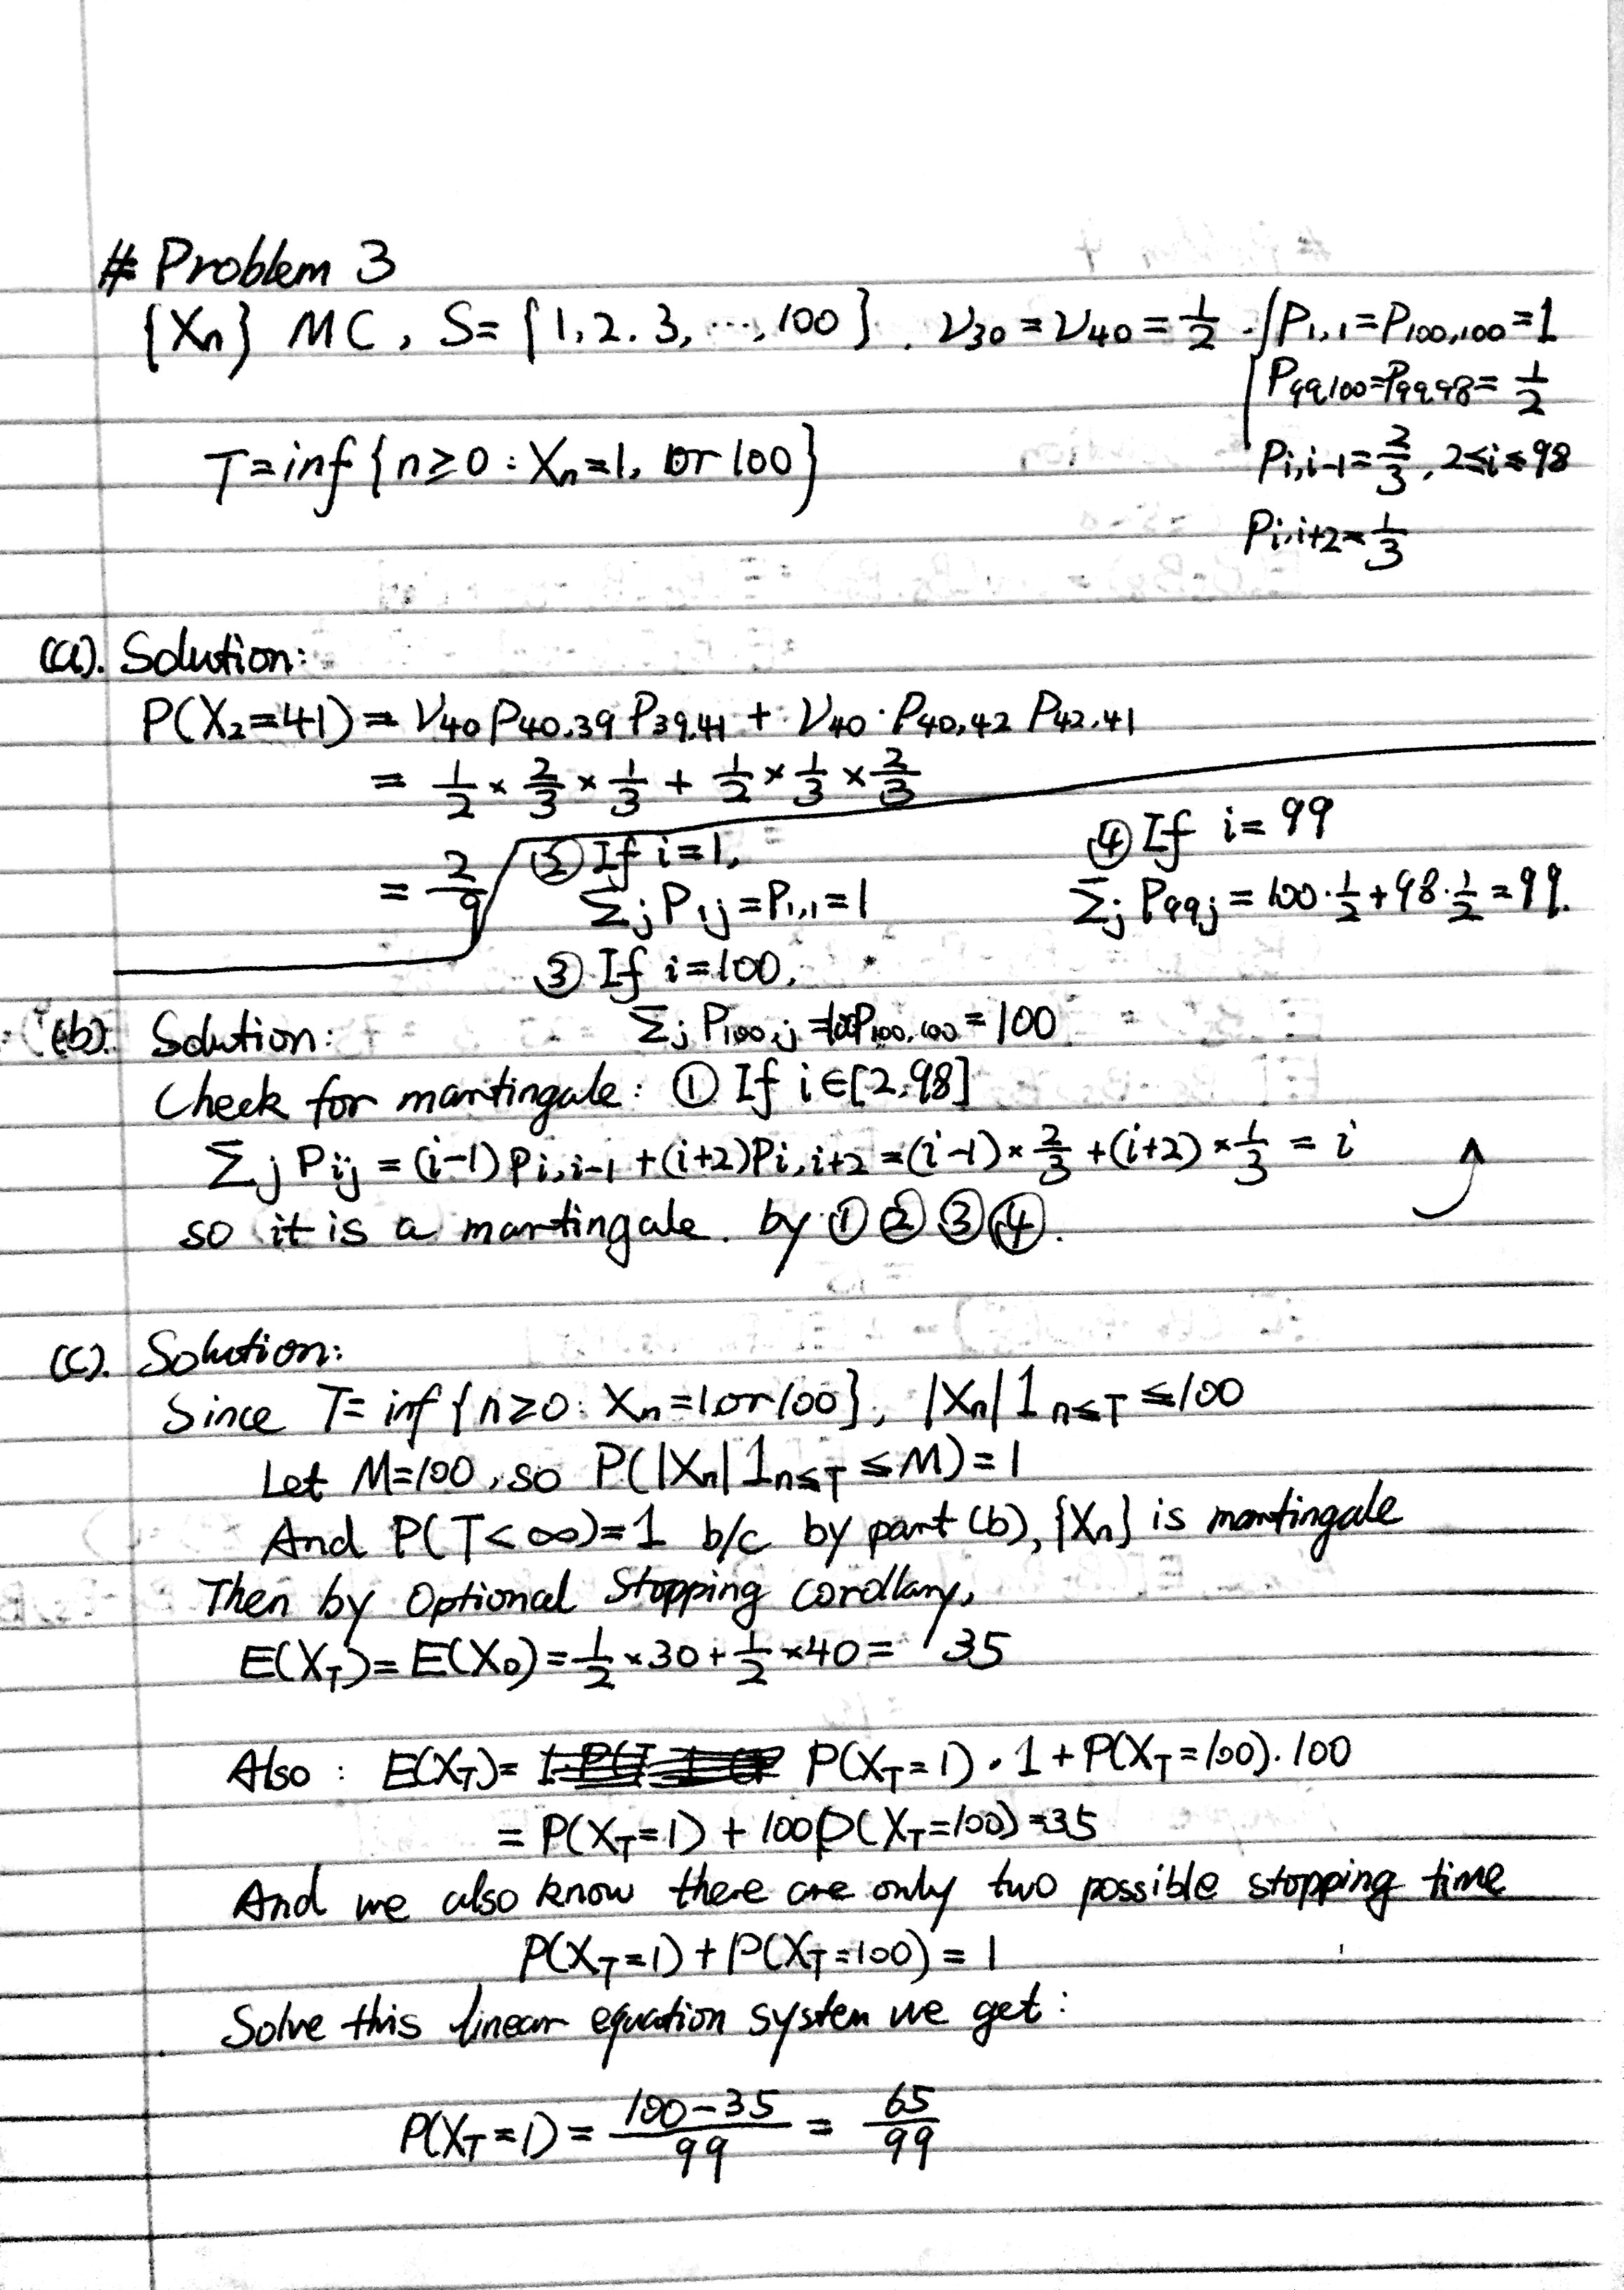 # Problem 3
{Xn} MC, S= {1, 2. 3, ..., 100}. ν30 = ν40 = 1/2. { P1,1 = P100,100 = 1
P99,100 = P99,98 = 1/2
T = inf {n ≥ 0 : Xn = 1, or 100}
Pi,i-1 = 2/3, 2≤i≤98
Pi,i+2 = 1/3
(a). Solution:
P(X2=41) = ν40 P40,39 P39,41 + ν40 · P40,42 P42,41
= 1/2 × 2/3 × 1/3 + 1/2 × 1/3 × 2/3
= 2/9
② If i=1,
Σj P1j = P1,1 = 1
③ If i=100,
Σj P100,j = 100P100,100 = 100
④ If i= 99
Σj P99j = 100·1/2 + 98·1/2 = 99.
(b). Solution:
Check for martingale: ① If i∈[2,98]
Σj Pij = (i-1) Pi,i-1 + (i+2)Pi,i+2 = (i-1) × 2/3 + (i+2) × 1/3 = i
so it is a martingale. by ① ② ③ ④.
(c). Solution:
Since T= inf {n≥0: Xn=1 or 100}, |Xn| 1n≤T ≤ 100
Let M=100, so P(|Xn| 1n≤T ≤ M) = 1
And P(T<∞)=1 b/c by part (b), {Xn} is martingale
Then by Optional Stopping Corollary,
E(XT) = E(X0) = 1/2 × 30 + 1/2 × 40 = 35
Also : E(XT) = P(XT=1) · 1 + P(XT=100) · 100
= P(XT=1) + 100P(XT=100) = 35
And we also know there are only two possible stopping time
P(XT=1) + P(XT=100) = 1
Solve this linear equation system we get:
P(XT=1) = 100-35/99 = 65/99